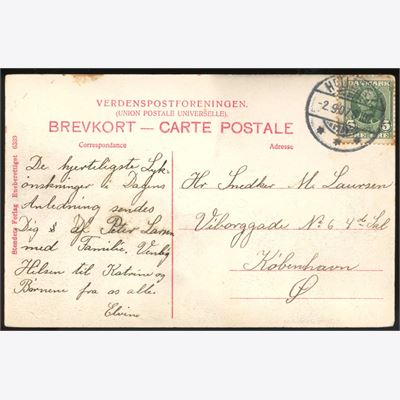 VERDENSPOSTFORENINGEN.
(UNION POSTALE UNIVERSELLE).
BREVKORT — CARTE POSTALE
Correspondance
Adresse
Stenders Forlag Eneberettiget 6333
De hjerteligste Lyk-
önskninger i Dagens
Anledning sendes
Dig af Peter Larsen
med Familie. Venlig
Hilsen til Katrine og
Børnene fra os alle.
Elvine
Hr Snedker M. Laursen
Viborggade No 6 4de Sal
København
Ø
DANMARK
5 5
-2.9.07